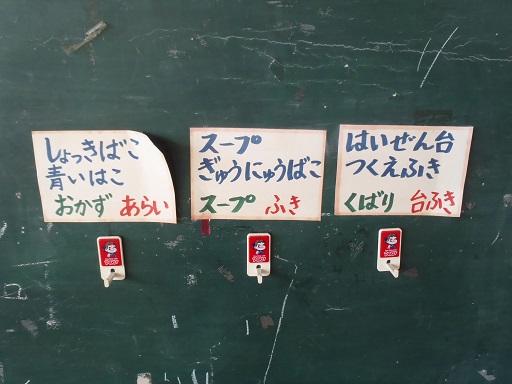 しょっきばこ
青いはこ
おかず あらい
スープ
ぎゅうにゅうばこ
スープ ふき
はいぜん台
つくえふき
くばり 台ふき